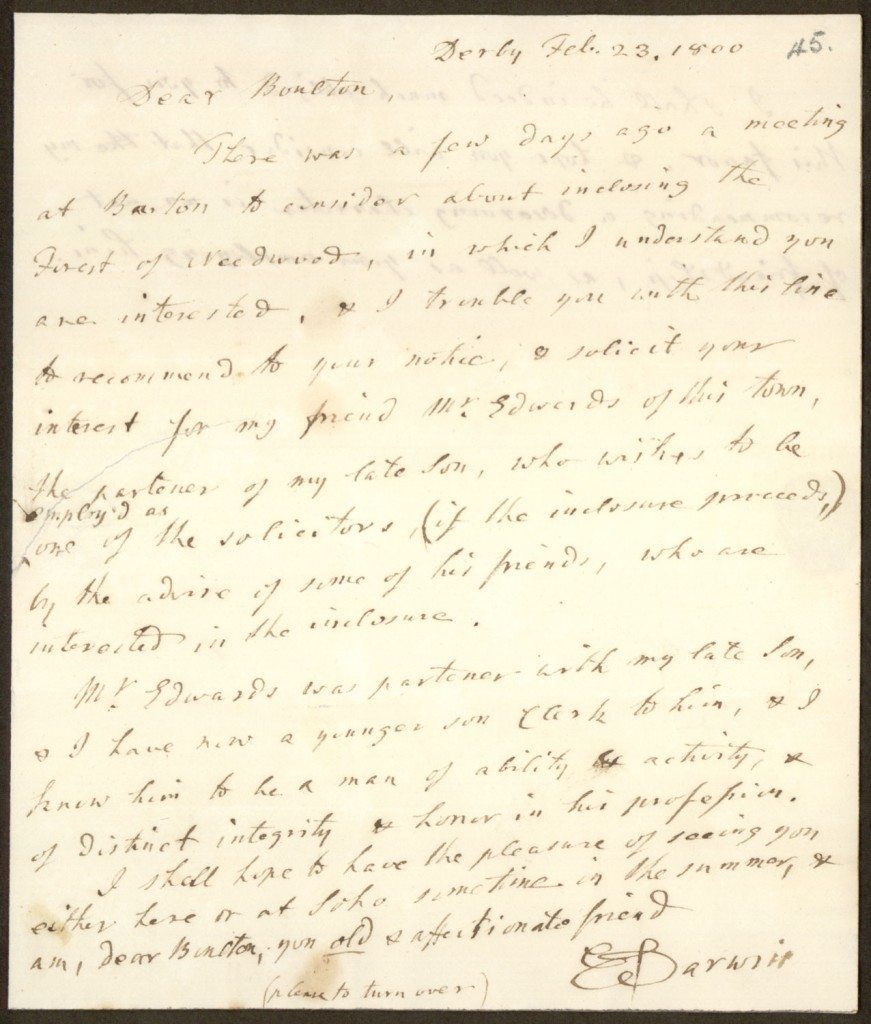 Derby Feb. 23. 1800 45.
Dear Boulton,
There was a few days ago a meeting
at Barton to consider about inclosing the
Forest of Needwood, in which I understand you
are interested, & I trouble you with this line
to recommend to your notice, & solicit your
interest for my friend Mr. Edwards of this town,
the partener of my late Son, who wishes to be
employ'd as
one of the solicitors, (if the inclosure proceeds,)
by the advise of some of his friends, who are
interested in the inclosure.
Mr. Edwards was partener with my late Son,
& I have now a younger son Clerk to him, & I
know him to be a man of ability & activity, &
of distinct integrity & honor in his profession.
I shall hope to have the pleasure of seeing you
either here or at Soho sometime in the summer, &
am, dear Boulton, your old & affectionate friend
E Darwin
(please to turn over)